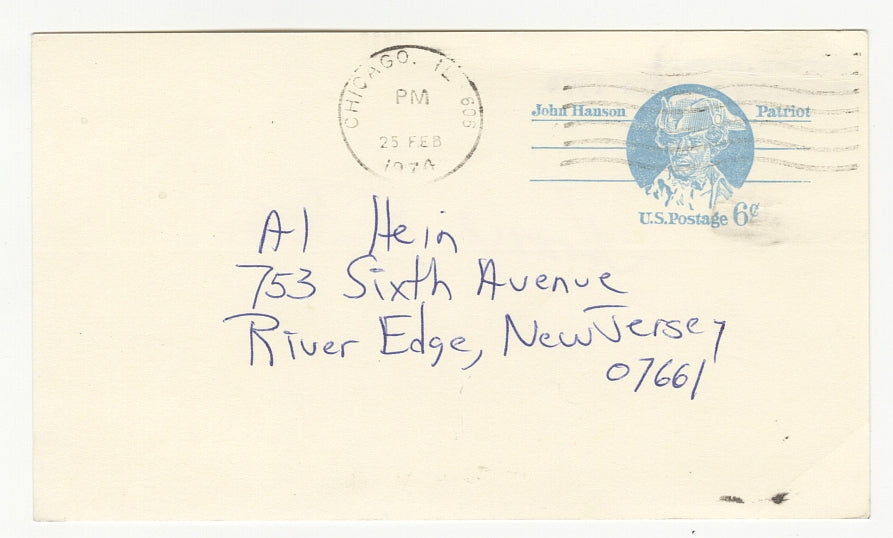 CHICAGO, IL 606
PM
25 FEB
1974
John Hanson Patriot
U.S.Postage 6¢
Al Hein
753 Sixth Avenue
River Edge, New Jersey
07661